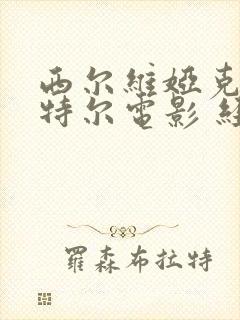 西尔維婭克
特尔電影 經
羅森布拉特